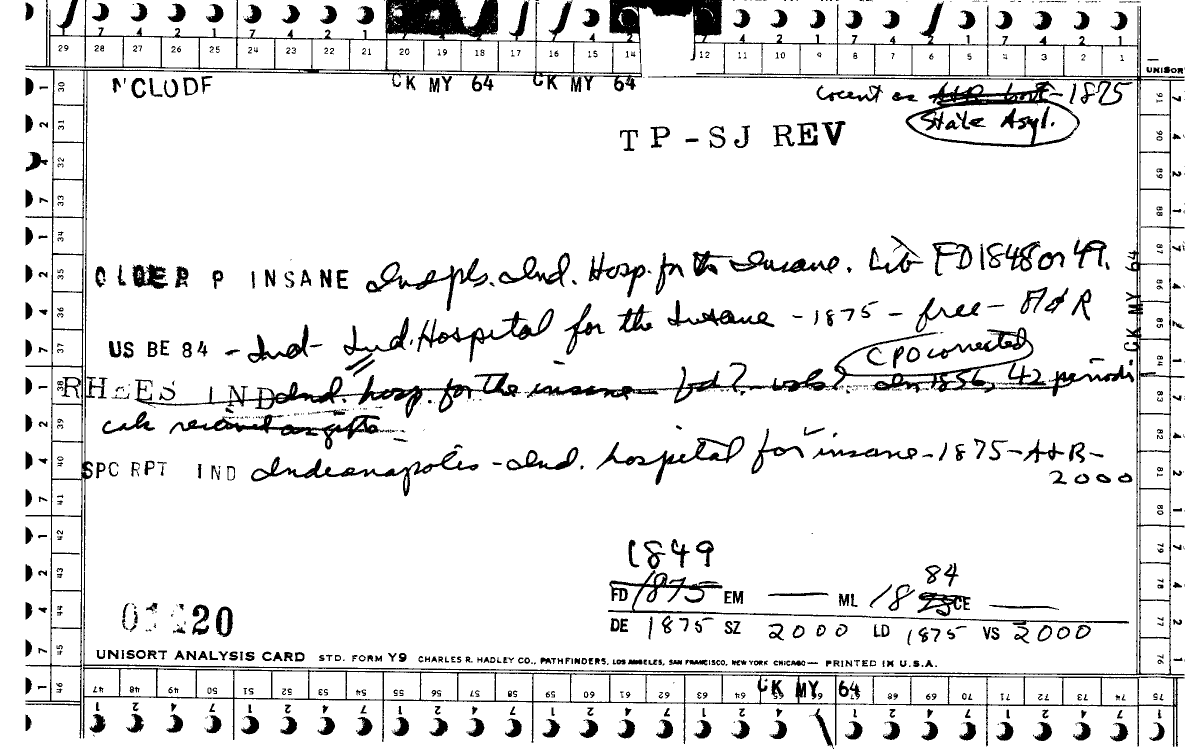 29 28 27 26 25 24 23 22 21 20 19 18 17 16 15 14 12 11 10 9 8 7 6 5 4 3 2 1
UNISORT
NCLUDE CK MY 64 CK MY 64
as A&R 1875
State Asyl.
TP-SJ REV
OLDER P INSANE Indpls. Ind. Hosp. for the Insane. Lib FD 1848 or 49.
CK MY 64
US BE 84 - Ind - Ind. Hospital for the Insane - 1875 - free - A&R
CPO corrected
RHEES IND Ind. hosp. for the insane fd? vols? In 1856, 42 periodi
cals received as gifts
SPC RPT IND Indianapolis - Ind. hospital for insane - 1875 - A&R -
2000
1849
84
FD 1875 EM — ML 18 CE —
DE 1875 SZ 2000 LD 1875 VS 2000
20
UNISORT ANALYSIS CARD STD. FORM Y9 CHARLES R. HADLEY CO., PATHFINDERS, LOS ANGELES, SAN FRANCISCO, NEW YORK CHICAGO — PRINTED IN U.S.A.
CK MY 64
47 48 49 50 51 52 53 54 55 56 57 58 59 60 61 62 63 64 65 66 67 68 69 70 71 72 73 74 75